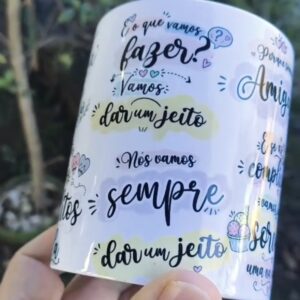 E o que vamos
fazer?
Vamos
dar um jeito
Nós vamos
sempre
dar um jeito
Amig
vamos
uma